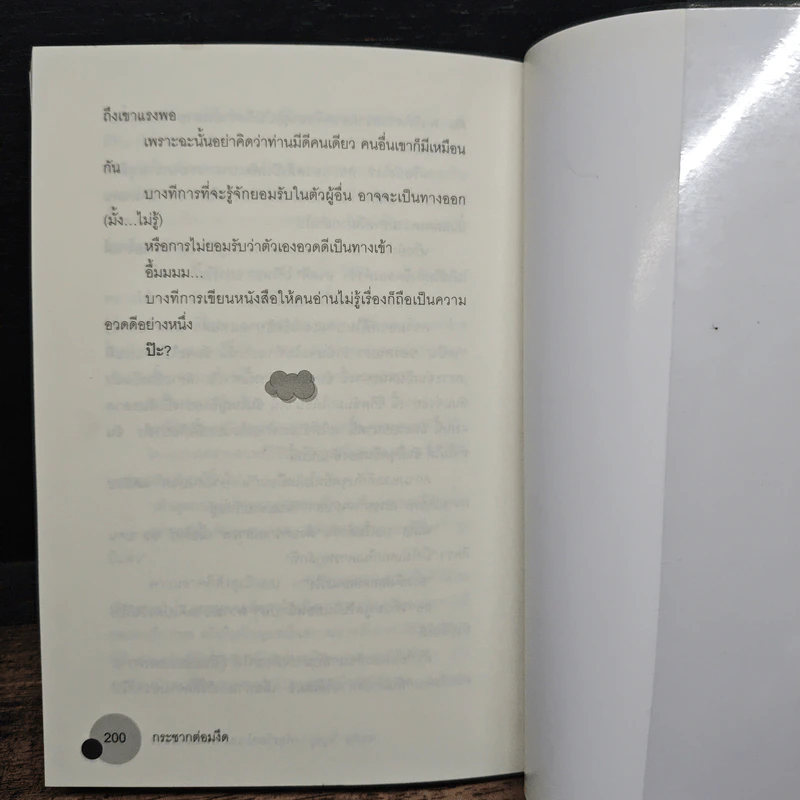 ถึงเขาแรงพอ
เพราะฉะนั้นอย่าคิดว่าท่านมีดีคนเดียว คนอื่นเขาก็มีเหมือน
กัน
บางทีการที่จะรู้จักยอมรับในตัวผู้อื่น อาจจะเป็นทางออก
(มั้ง...ไม่รู้)
หรือการไม่ยอมรับว่าตัวเองอวดดีเป็นทางเข้า
อึ้มมมม...
บางทีการเขียนหนังสือให้คนอ่านไม่รู้เรื่องก็ถือเป็นความ
อวดดีอย่างหนึ่ง
ป๊ะ?
200 กระซากต่อมงืด